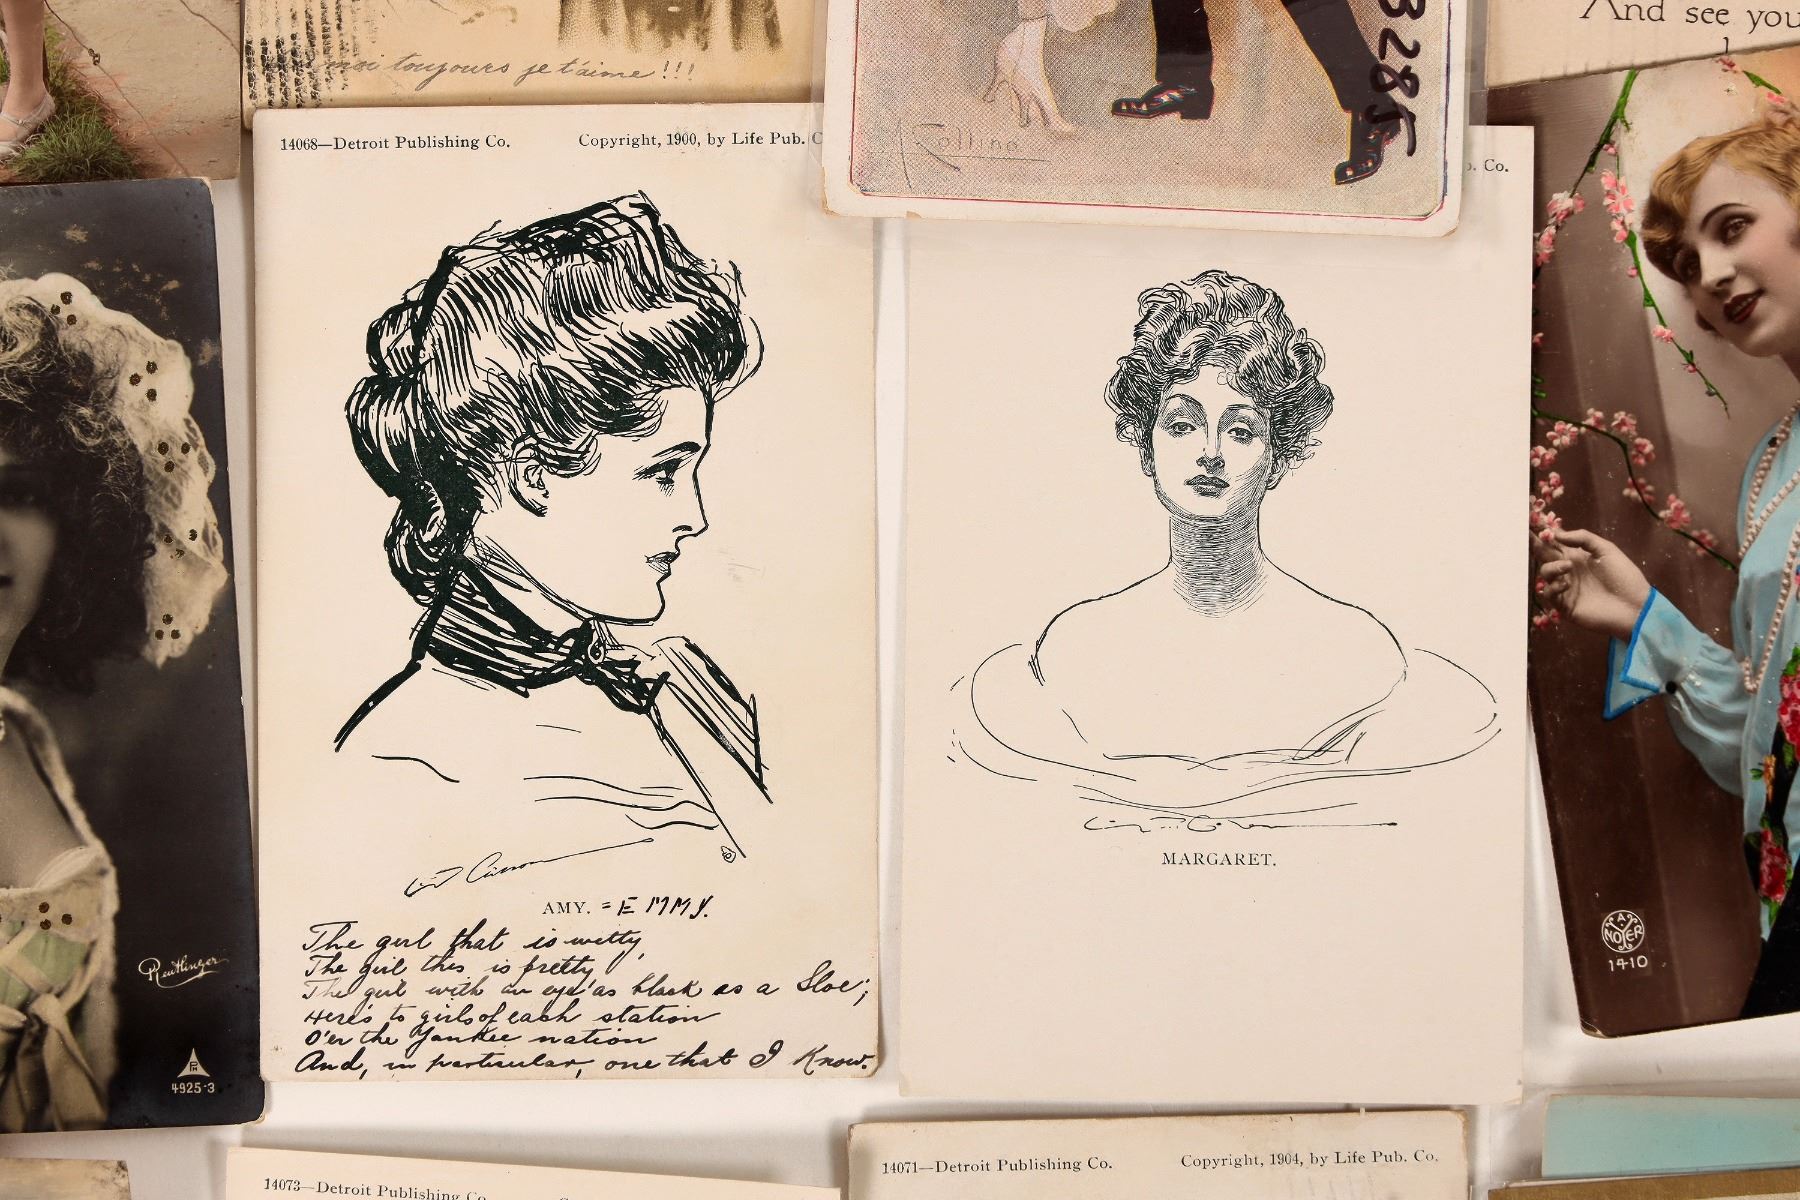 moi toujours je t'aime !!!
And see you
3285
Rollino
14068—Detroit Publishing Co.
Copyright, 1900, by Life Pub. C
. Co.
AMY. = EMMY.
The girl that is witty,
The girl this is pretty,
The girl with an eye as black as a Sloe;
Here's to girls of each station
O'er the Yankee nation
And, in particular, one that I Know.
MARGARET.
Reutlinger
PH
4925-3
A
NOYER
1410
14073—Detroit Publishing Co
14071—Detroit Publishing Co.
Copyright, 1904, by Life Pub. Co.